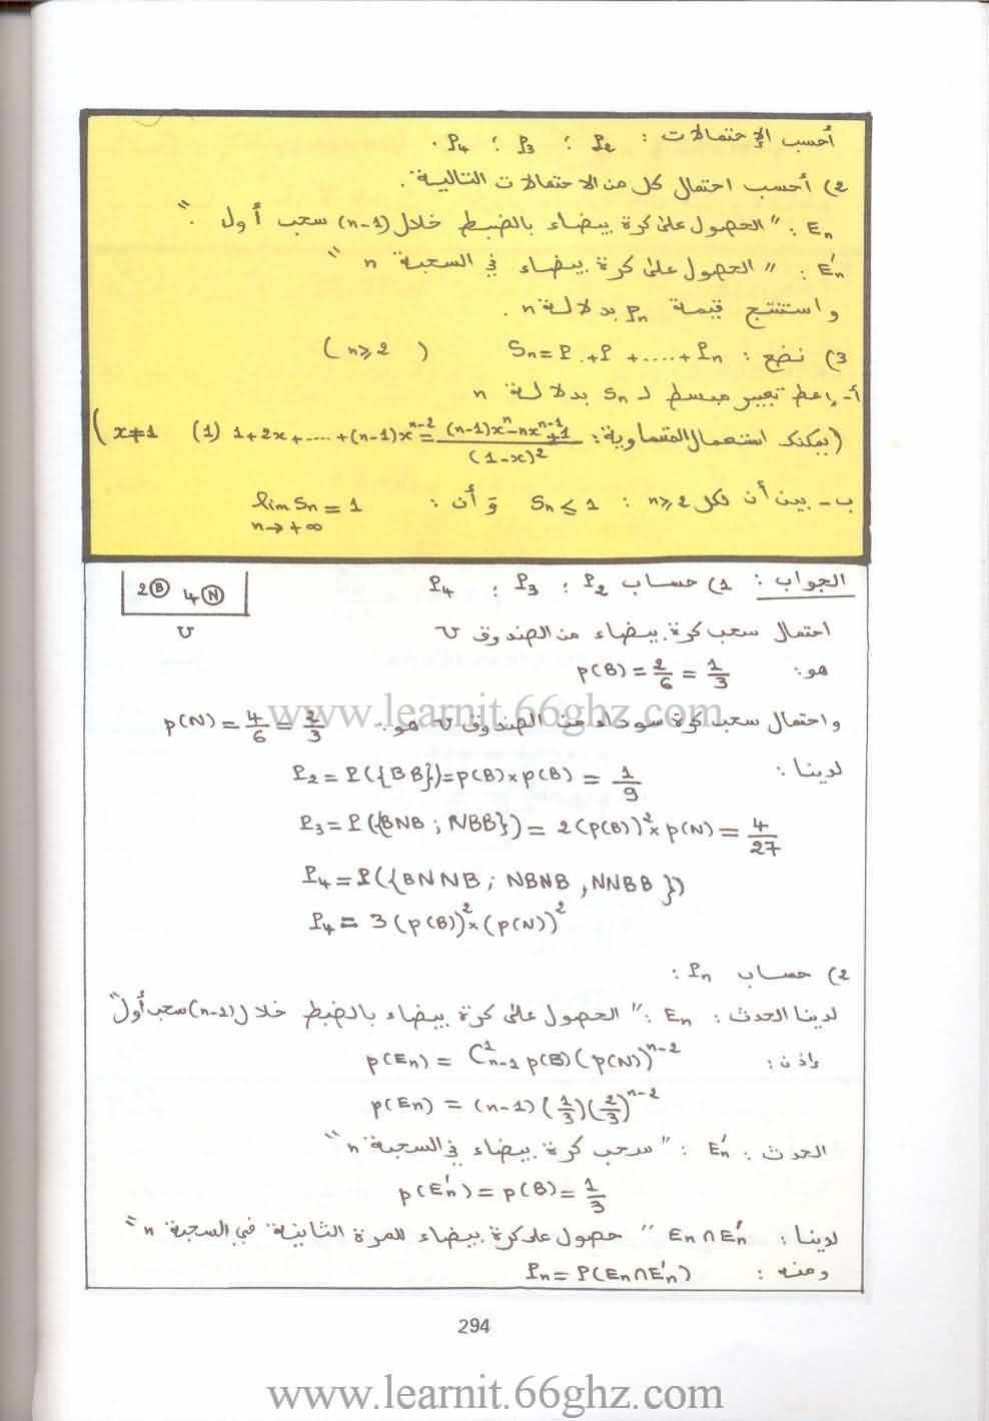 أحسب الإحتمالات : P₂ ؛ P₃ ؛ P₄ .
2) أحسب احتمال كل من الاحتمالات التالية .
Eₙ : " الحصول على كرة بيضاء بالضبط خلال (n-1) سحب أول " .
E'ₙ : " الحصول على كرة بيضاء في السحبة n "
واستنتج قيمة Pₙ بدلالة n .
3) نضع : Sₙ = P + P + ..... + Pₙ ( n ≥ 2 )
أ- إعط تعبير مبسط لـ Sₙ بدلالة n
(يمكنك استعمال المتساوية : 1+2x+....+(n-1)xⁿ⁻² = ((n-1)xⁿ - nxⁿ⁻¹ + 1)/(1-x)² (1) x≠1)
ب- بين أن لكل n ≥ 2 : Sₙ ≤ 1 وَ أن : lim Sₙ = 1
n → +∞
الجواب : 1) حساب P₂ ؛ P₃ ؛ P₄
2Ⓑ 4Ⓝ
U
احتمال سحب كرة بيضاء من الصندوق U
هو : p(B) = 2/6 = 1/3
واحتمال سحب كرة سوداء من الصندوق U هو : p(N) = 4/6 = 2/3
www.learnit.66ghz.com
لدينا : P₂ = P({BB}) = p(B) × p(B) = 1/9
P₃ = P({BNB ; NBB}) = 2(p(B))² × p(N) = 4/27
P₄ = P({BNNB ; NBNB , NNBB})
P₄ = 3(p(B))² × (p(N))²
2) حساب Pₙ :
لدينا الحدث : Eₙ : " الحصول على كرة بيضاء بالضبط خلال (n-1) سحب أول "
إذن : p(Eₙ) = C¹ₙ₋₁ p(B) (p(N))ⁿ⁻²
p(Eₙ) = (n-1) (1/3)(2/3)ⁿ⁻²
الحدث : E'ₙ : " سحب كرة بيضاء في السحبة n "
p(E'ₙ) = p(B) = 1/3
لدينا : Eₙ ∩ E'ₙ " حصول على كرة بيضاء للمرة الثانية في السحبة n "
ومنه : Pₙ = P(Eₙ ∩ E'ₙ)
294
www.learnit.66ghz.com